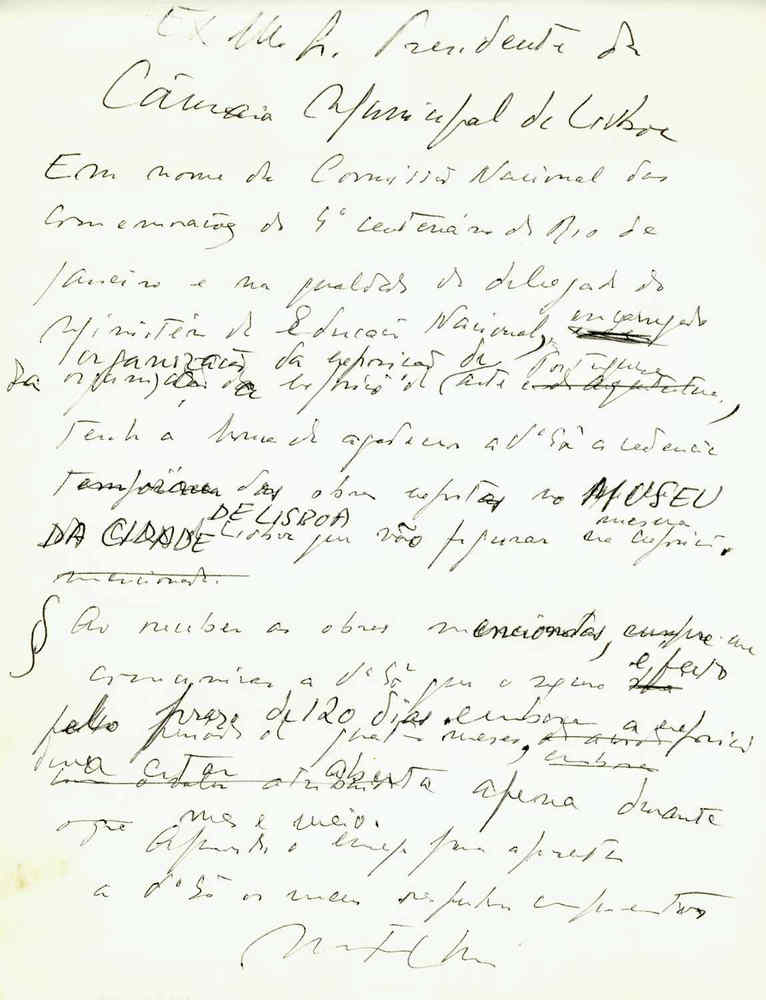 Ex Mo Sr. Presidente da
Câmara Municipal de Lisboa
Em nome da Comissão Nacional das
Comemorações do 4º centenário do Rio de
Janeiro e na qualidade de delegado do
Ministério de Educação Nacional, encarregado
organização da exposição de Portuguesa
da organização da exposição de arte
tenho a honra de agradecer a Vª Exª a cedência
temporária das obras expostas no MUSEU
DE LISBOA mesma
DA CIDADE Lisboa que vão figurar na exposição.
mencionada.
§ Ao receber as obras mencionadas, cumpre-me
efeito
comunicar a Vª Exª que o seguro
pelo prazo de 120 dias embora a exposição
período de quatro meses, embora
vá estar aberta apenas durante
mes e meio.
Aproveito o ensejo para apresentar
a Vª Exª os meus respeitosos cumprimentos